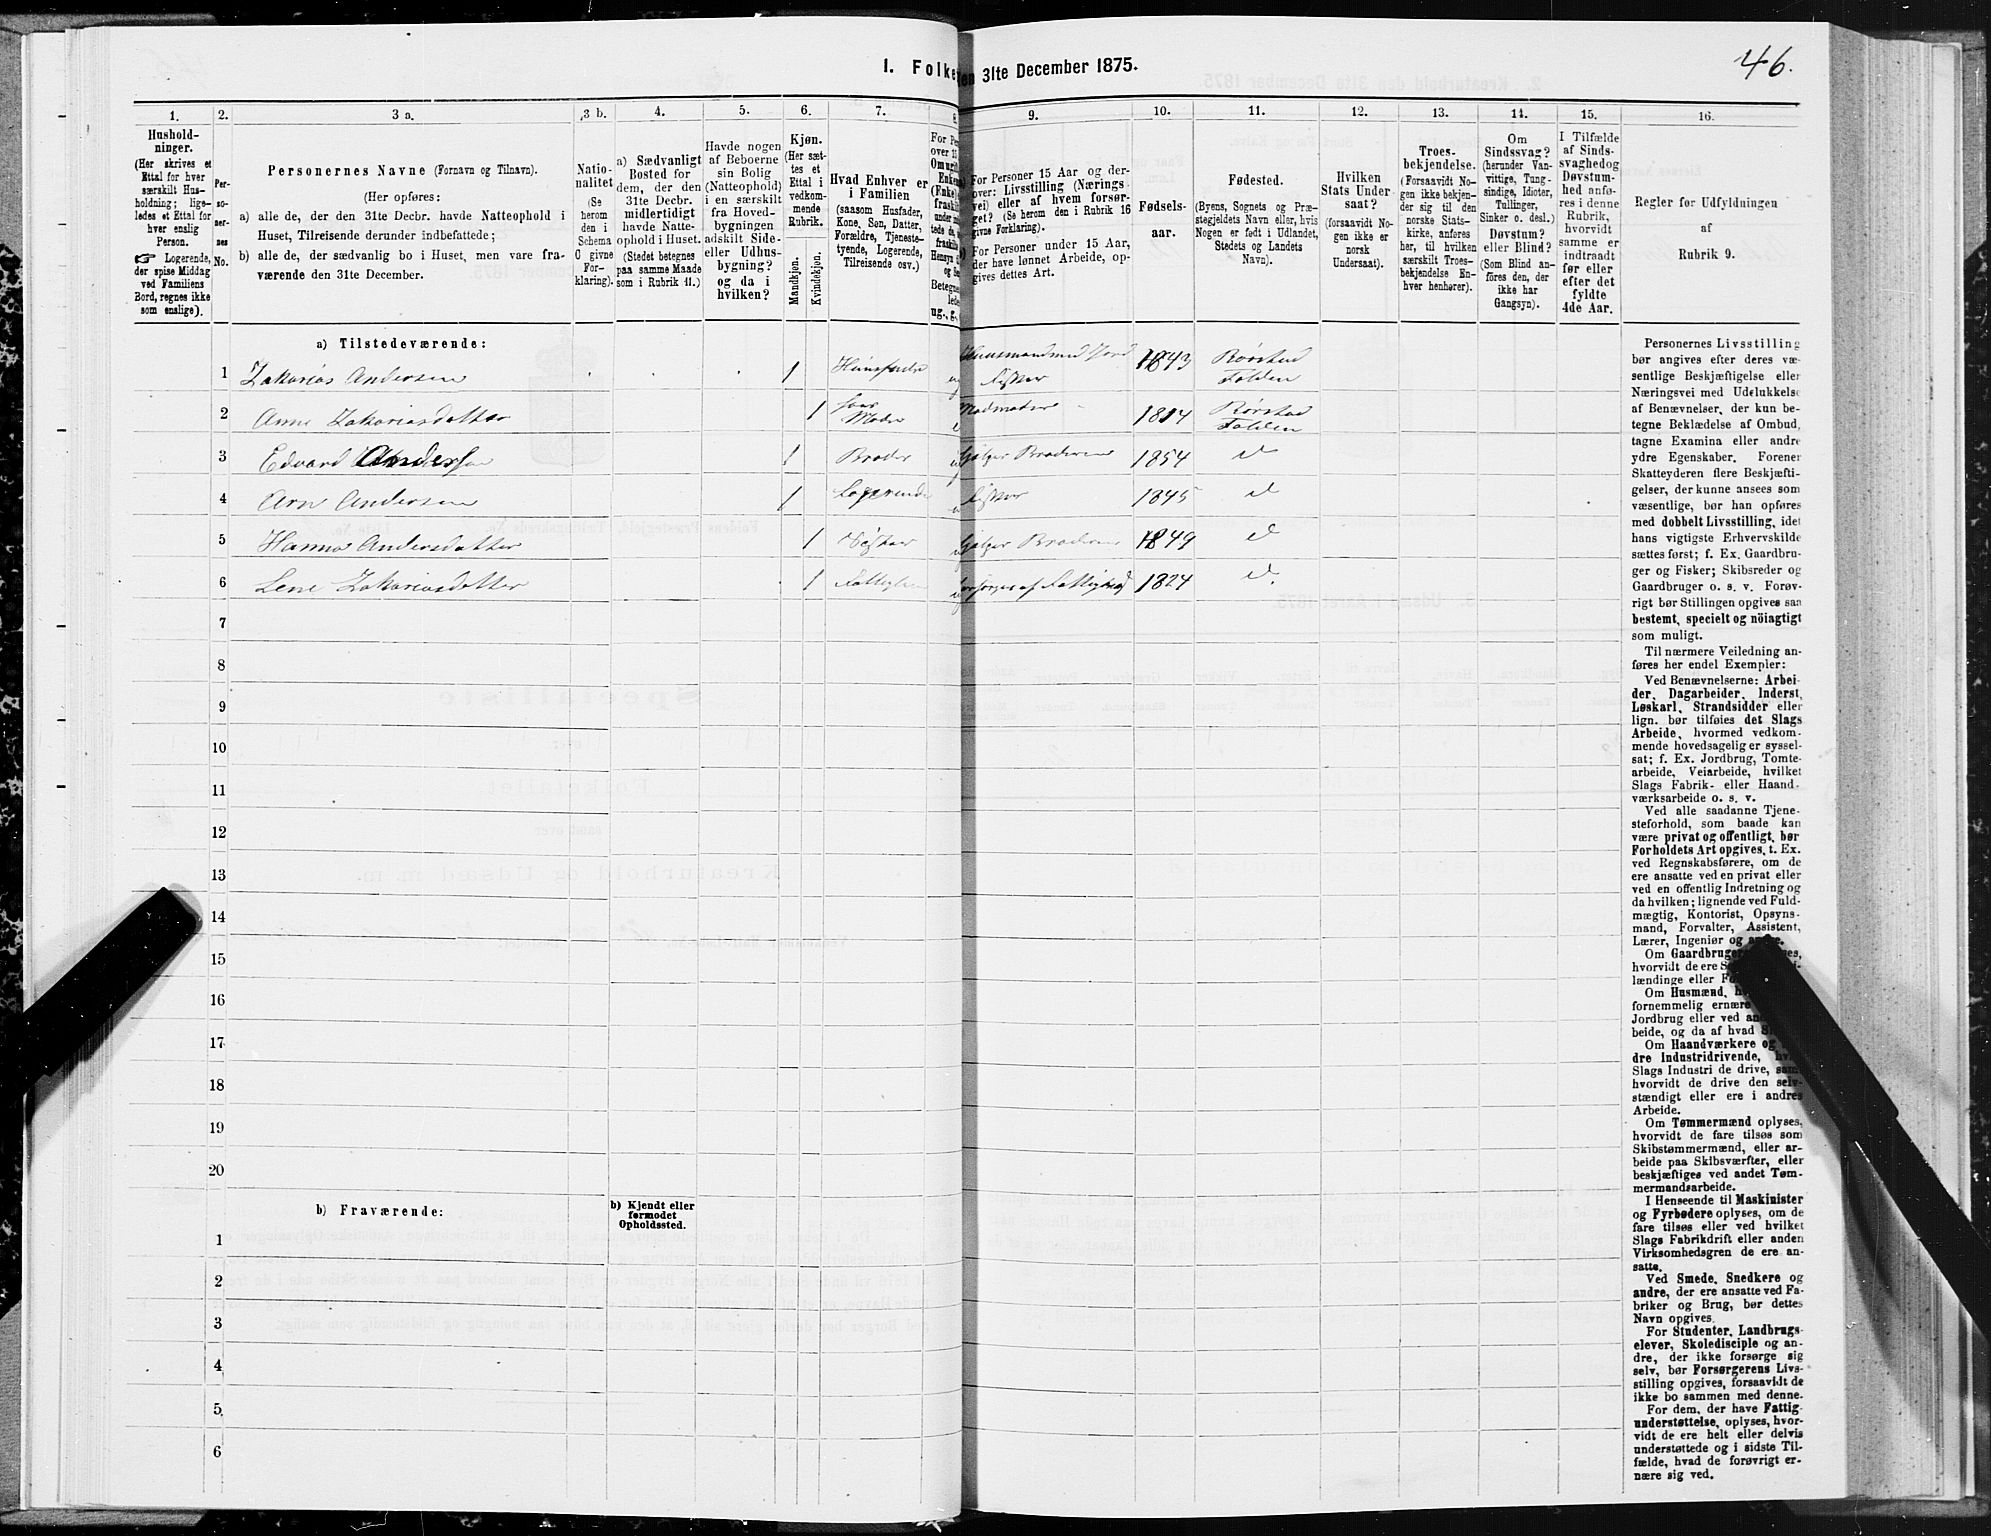 1. Folke
en 31te December 1875.
46.
1.
Hushold-
ninger.
(Her skrives et
Ettal for hver
særskilt Hus-
holdning; lige-
ledes et Ettal for
hver enslig
Person.
☞ Logerende,
der spise Middag
ved Familiens
Bord, regnes ikke
som enslige).
2.
Per-
so-
ner-
nes
No.
3 a.
Personernes Navne (Fornavn og Tilnavn).
(Her opføres:
a) alle de, der den 31te Decbr. havde Natteophold i
Huset, Tilreisende derunder indbefattede;
b) alle de, der sædvanlig bo i Huset, men vare fra-
værende den 31te December.
3 b.
Natio-
nalitet
(Se
herom
den i
Schema
C givne
For-
klaring).
4.
a) Sædvanligt
Bosted for
dem, der den
31te Decbr.
midlertidigt
havde Natte-
ophold i Huset.
(Stedet betegnes
paa samme Maade
som i Rubrik 11.)
5.
Havde nogen
af Beboerne
sin Bolig
(Natteophold)
i en særskilt
fra Hoved-
bygningen
adskilt Side-
eller Udhus-
bygning?
og da i
hvilken?
6.
Kjøn.
(Her sæt-
tes et
Ettal i
vedkom-
mende
Rubrik.
Mandkjøn.
Kvindekjøn.
7.
Hvad Enhver er
i Familien
(saasom Husfader,
Kone, Søn, Datter,
Forældre, Tjeneste-
tyende, Logerende,
Tilreisende osv.)
8.
For Pe
over 15
Omugift
Enkem
(Enke)
fraskilt
9.
For Personer 15 Aar og der-
over: Livsstilling (Nærings
vei) eller af hvem forsør-
get? (Se herom den i Rubrik 16
givne Forklaring).
For Personer under 15 Aar,
der have lønnet Arbeide, op-
gives dettes Art.
10.
Fødsels-
aar.
11.
Fødested.
(Byens, Sognets og Præ-
stegjeldets Navn eller, hvis
Nogen er født i Udlandet,
Stedets og Landets
Navn).
12.
Hvilken
Stats Under
saat?
(forsaavidt No-
gen ikke er
norsk
Undersaat).
13.
Troes-
bekjendelse.
(Forsaavidt No-
gen ikke bekjen-
der sig til den
norske Stats-
kirke, anføres
her, til hvilken
særskilt Troes-
bekjendelse En-
hver henhører).
14.
Om
Sindssvag?
(herunder Van-
vittige, Tung-
sindige, Idioter,
Tullinger,
Sinker o. desl.)
Døvstum?
eller Blind?
(Som Blind an-
føres den, der
ikke har
Gangsyn).
15.
I Tilfælde
af Sinds-
svaghedog
Døvstum-
hed anfø-
res i denne
Rubrik,
hvorvidt
samme er
indtraadt
før eller
efter det
fyldte
4de Aar.
16.
Regler for Udfyldningen
af
Rubrik 9.
a) Tilstedeværende:
1 Zakarias Andersen 1 Huusfader Huusmand med Jord Fisker 1843 Rørstad Folden
2 Anne Zakariasdatter 1 Moder Madmoder 1814 Rørstad Folden
3 Edvard Andersen 1 Broder hjelper Broderen 1854 d
4 Arn Andersen 1 Logerende Fisker 1845 d
5 Hanna Andersdatter 1 hjelper Broderen 1849 d
6 Lene Zakariasdatter 1 forsørges af 1824 d.
7
8
9
10
11
12
13
14
15
16
17
18
19
20
b) Fraværende:
b) Kjendt eller
formodet
Opholdssted.
1
2
3
4
5
6
Personernes Livsstilling
bør angives efter deres væ-
sentlige Beskjæftigelse eller
Næringsvei med Udelukkelse
af Benævnelser, der kun be-
tegne Beklædelse af Ombud,
tagne Examina eller andre
ydre Egenskaber. Forener
Skatteyderen flere Beskjæfti-
gelser, der kunne ansees som
væsentlige, bør han opføres
med dobbelt Livsstilling, idet
hans vigtigste Erhvervskilde
sættes først; f. Ex. Gaardbru-
ger og Fisker; Skibsreder og
Gaardbruger o. s. v. Forøv-
rigt bør Stillingen opgives saa
bestemt, specielt og nöiagtigt
som muligt.
Til nærmere Veiledning an-
føres her endel Exempler:
Ved Benævnelserne: Arbei-
der, Dagarbeider, Inderst,
Løskarl, Strandsidder eller
lign. bør tilføies det Slags
Arbeide, hvormed vedkom-
mende hovedsagelig er syssel-
sat; f. Ex. Jordbrug, Tomte-
arbeide, Veiarbeide, hvilket
Slags Fabrik- eller Haand-
værksarbeide o. s. v.
Ved alle saadanne Tjene-
steforhold, som baade kan
være privat og offentligt, bør
Forholdets Art opgives, t. Ex.
ved Regnskabsførere, om de
ere ansatte ved en privat eller
ved en offentlig Indretning og
da hvilken; lignende ved Fuld-
mægtig, Kontorist, Opsyns-
mand, Forvalter, Assistent,
Lærer, Ingeniør og andre.
Om Gaardbruger
hvorvidt de ere
lændinge eller
Om Husmænd,
fornemmelig ernære
Jordbrug eller ved
beide, og da af hvad
Om Haandværkere og
dre Industridrivende,
Slags Industri de drive,
hvorvidt de drive den selv-
stændigt eller ere i andres
Arbeide.
Om Tømmermænd oplyses,
hvorvidt de fare tilsøs som
Skibstømmermænd, eller ar-
beide paa Skibsværfter, eller
beskjæftiges ved andet Tøm-
mermandsarbeide.
I Henseende til Maskinister
og Fyrbødere oplyses, om de
fare tilsøs eller ved hvilket
Slags Fabrikdrift eller anden
Virksomhedsgren de ere an-
satte.
Ved Smede, Snedkere og
andre, der ere ansatte ved Fa-
briker og Brug, bør dettes
Navn opgives.
For Studenter, Landbrugs-
elever, Skoledisciple og an-
dre, der ikke forsørge sig
selv, bør Forsørgerens Livs-
stilling opgives, forsaavidt de
ikke bo sammen med denne.
For dem, der have Fattig-
understøttelse, oplyses, hvor-
vidt de ere helt eller delvis
understøttede og i sidste Til-
fælde, hvad de forøvrigt er-
nære sig ved.